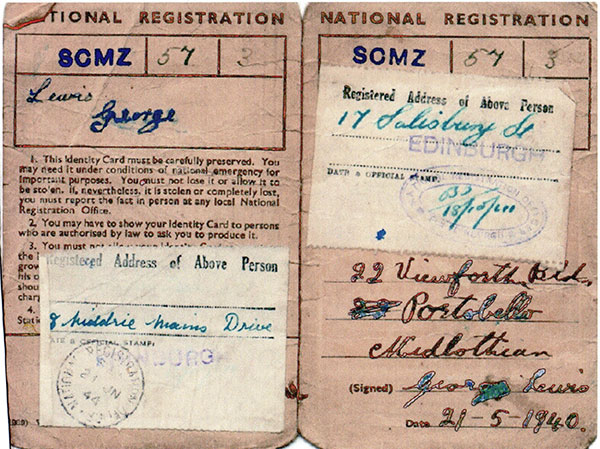 NATIONAL REGISTRATION
SCMZ 57 3
Lewis
George
1. This Identity Card must be carefully preserved. You
may need it under conditions of national emergency for
important purposes. You must not lose it or allow it to
be stolen. If, nevertheless, it is stolen or completely lost,
you must report the fact in person at any local National
Registration Office.
2. You may have to show your Identity Card to persons
who are authorised by law to ask you to produce it.
3. You must not
the
grow
his
shou
char
4.
Stati
Registered Address of Above Person
8 Niddrie Mains Drive
DATE & OFFICIAL STAMP:
EDINBURGH
NATIONAL REGISTRATION
JN
44
NATIONAL REGISTRATION
SCMZ 57 3
Registered Address of Above Person
17 Salisbury St
EDINBURGH
DATE & OFFICIAL STAMP:
22 Viewforth
Portobello
Midlothian
(Signed) George Lewis
Date 21-5-1940.